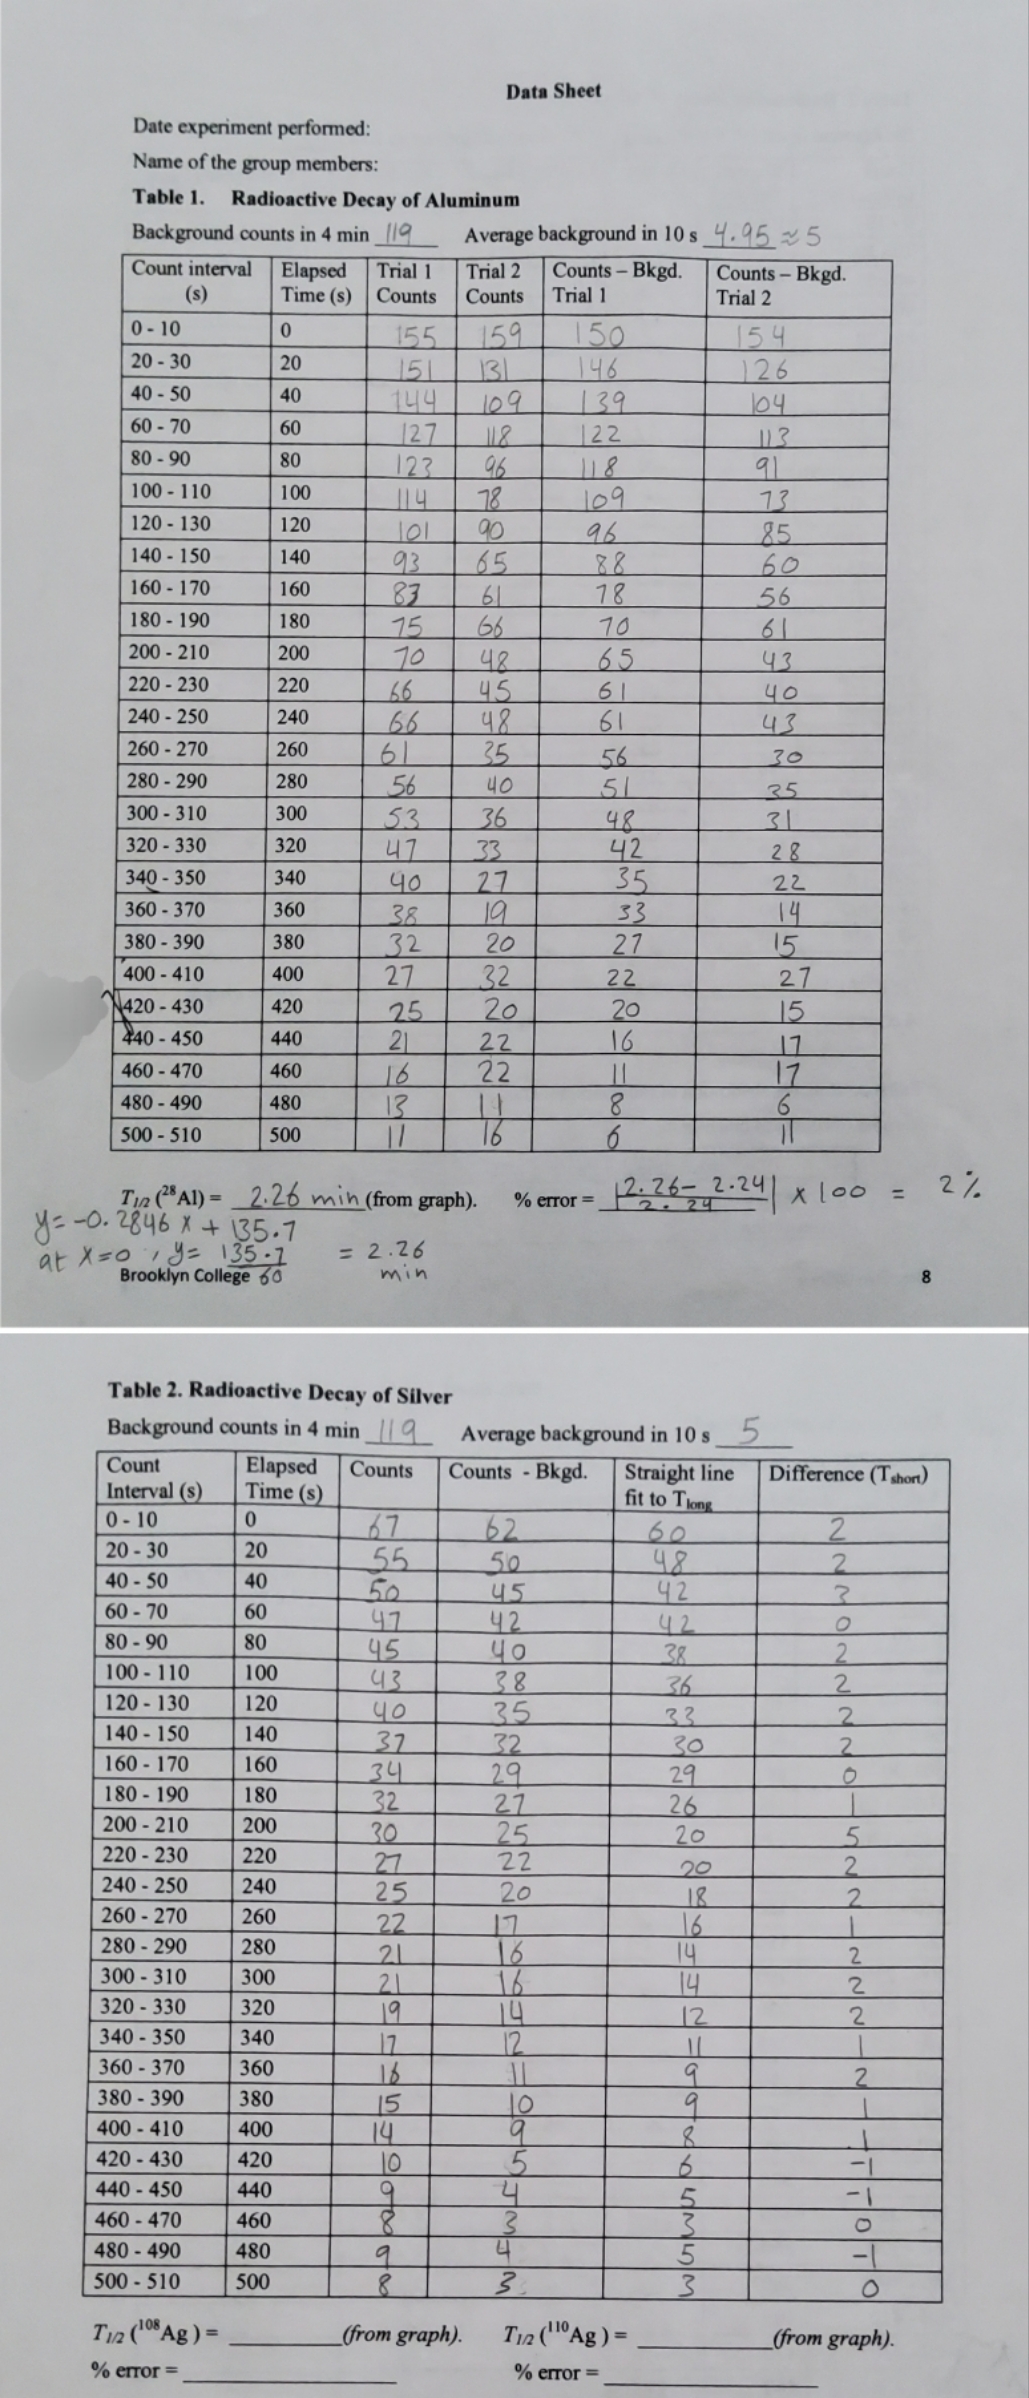 Data Sheet
Date experiment performed:
Name of the group members:
Table 1. Radioactive Decay of Aluminum
Background counts in 4 min 119 Average background in 10 s 4.95 ≈ 5
Count interval (s) Elapsed Time (s) Trial 1 Counts Trial 2 Counts Counts – Bkgd. Trial 1 Counts – Bkgd. Trial 2
0 - 10 0 155 159 150 154
20 - 30 20 151 131 146 126
40 - 50 40 144 109 139 104
60 - 70 60 127 118 122 113
80 - 90 80 123 96 118 91
100 - 110 100 114 78 109 73
120 - 130 120 101 90 96 85
140 - 150 140 93 65 88 60
160 - 170 160 83 61 78 56
180 - 190 180 75 66 70 61
200 - 210 200 70 48 65 43
220 - 230 220 66 45 61 40
240 - 250 240 66 48 61 43
260 - 270 260 61 35 56 30
280 - 290 280 56 40 51 35
300 - 310 300 53 36 48 31
320 - 330 320 47 33 42 28
340 - 350 340 40 27 35 22
360 - 370 360 38 19 33 14
380 - 390 380 32 20 27 15
400 - 410 400 27 32 22 27
420 - 430 420 25 20 20 15
440 - 450 440 21 22 16 17
460 - 470 460 16 22 11 17
480 - 490 480 13 11 8 6
500 - 510 500 11 16 6 11
T1/2 (28Al) = 2.26 min (from graph). % error = |2.26 - 2.24 / 2.24| × 100 = 2%
y = -0.2846 x + 135.7
at x=0, y= 135.7/60 = 2.26 min
Brooklyn College 8
Table 2. Radioactive Decay of Silver
Background counts in 4 min 119 Average background in 10 s 5
Count Interval (s) Elapsed Time (s) Counts Counts - Bkgd. Straight line fit to Tlong Difference (Tshort)
0 - 10 0 67 62 60 2
20 - 30 20 55 50 48 2
40 - 50 40 50 45 42 3
60 - 70 60 47 42 42 0
80 - 90 80 45 40 38 2
100 - 110 100 43 38 36 2
120 - 130 120 40 35 33 2
140 - 150 140 37 32 30 2
160 - 170 160 34 29 29 0
180 - 190 180 32 27 26 1
200 - 210 200 30 25 20 5
220 - 230 220 27 22 20 2
240 - 250 240 25 20 18 2
260 - 270 260 22 17 16 1
280 - 290 280 21 16 14 2
300 - 310 300 21 16 14 2
320 - 330 320 19 14 12 2
340 - 350 340 17 12 11 1
360 - 370 360 16 11 9 2
380 - 390 380 15 10 9 1
400 - 410 400 14 9 8 1
420 - 430 420 10 5 6 -1
440 - 450 440 9 4 5 -1
460 - 470 460 8 3 3 0
480 - 490 480 9 4 5 -1
500 - 510 500 8 3 3 0
T1/2 (108Ag) = (from graph). T1/2 (110Ag) = (from graph).
% error = % error =